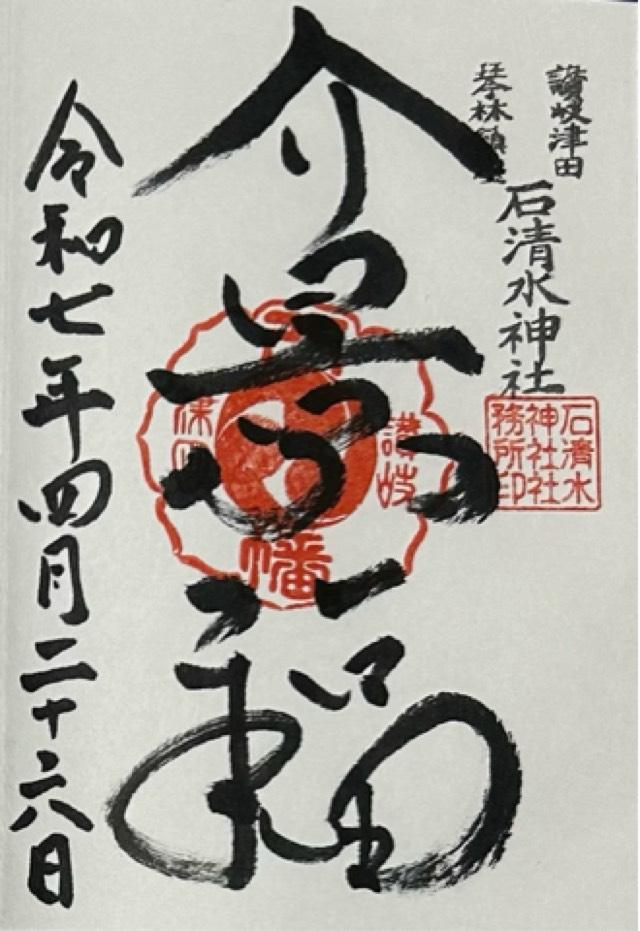 讚岐津田
琴林鎮座
石清水神社
石清水
神社社
務所印
介景福
讃岐
幡
令和七年四月二十六日